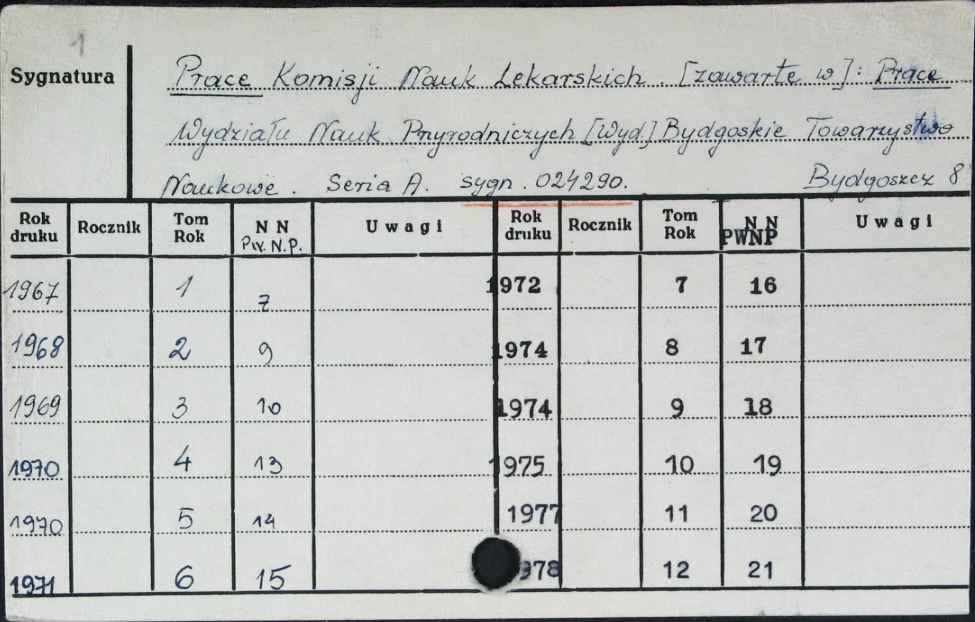 1
Sygnatura
Prace Komisji Nauk Lekarskich. [zawarte w]: Prace
Wydziału Nauk Przyrodniczych [Wyd.] Bydgoskie Towarzystwo
Naukowe. Seria A. sygn. 024290. Bydgoszcz 8
Rok druku Rocznik Tom Rok N N Pw. N.P. Uwagi Rok druku Rocznik Tom Rok N N PWNP Uwagi
1967 1 7 1972 7 16
1968 2 9 1974 8 17
1969 3 10 1974 9 18
1970 4 13 1975 10 19
1970 5 14 1977 11 20
1971 6 15 978 12 21